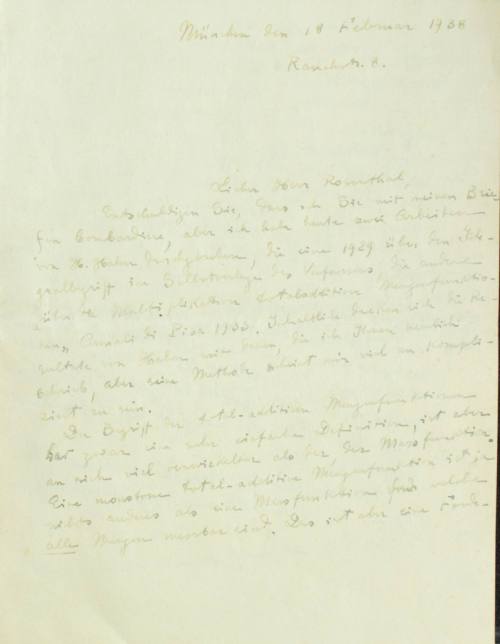 München den 18 Februar 1938
Rauchstr. 8.
Lieber Herr Rosenthal,
Entschuldigen Sie, dass ich Sie mit meinen Brie-
fen bombardiere, aber ich habe heute zwei Arbeiten
von H. Hahn durchgesehen, die eine 1929 über den Inte-
gralbegriff im Selbstverlage des Verfassers, die andere
über die Multiplikation total-additiver Mengenfunktio-
nen, Annali di Pisa 1933. Inhaltlich decken sich die Re-
sultate von Hahn mit denen, die ich Ihnen neulich
schrieb, aber seine Methode scheint mir viel zu kompli-
ziert zu sein.
Der Begriff der total-additiven Mengenfunktionen
hat zwar eine sehr einfache Definition, ist aber
an sich viel verwickelter als der der Massfunktion.
Eine monotone total-additive Mengenfunktion ist ja
nichts anderes als eine Massfunktion für welche
alle Mengen messbar sind. Das ist aber eine Forde-